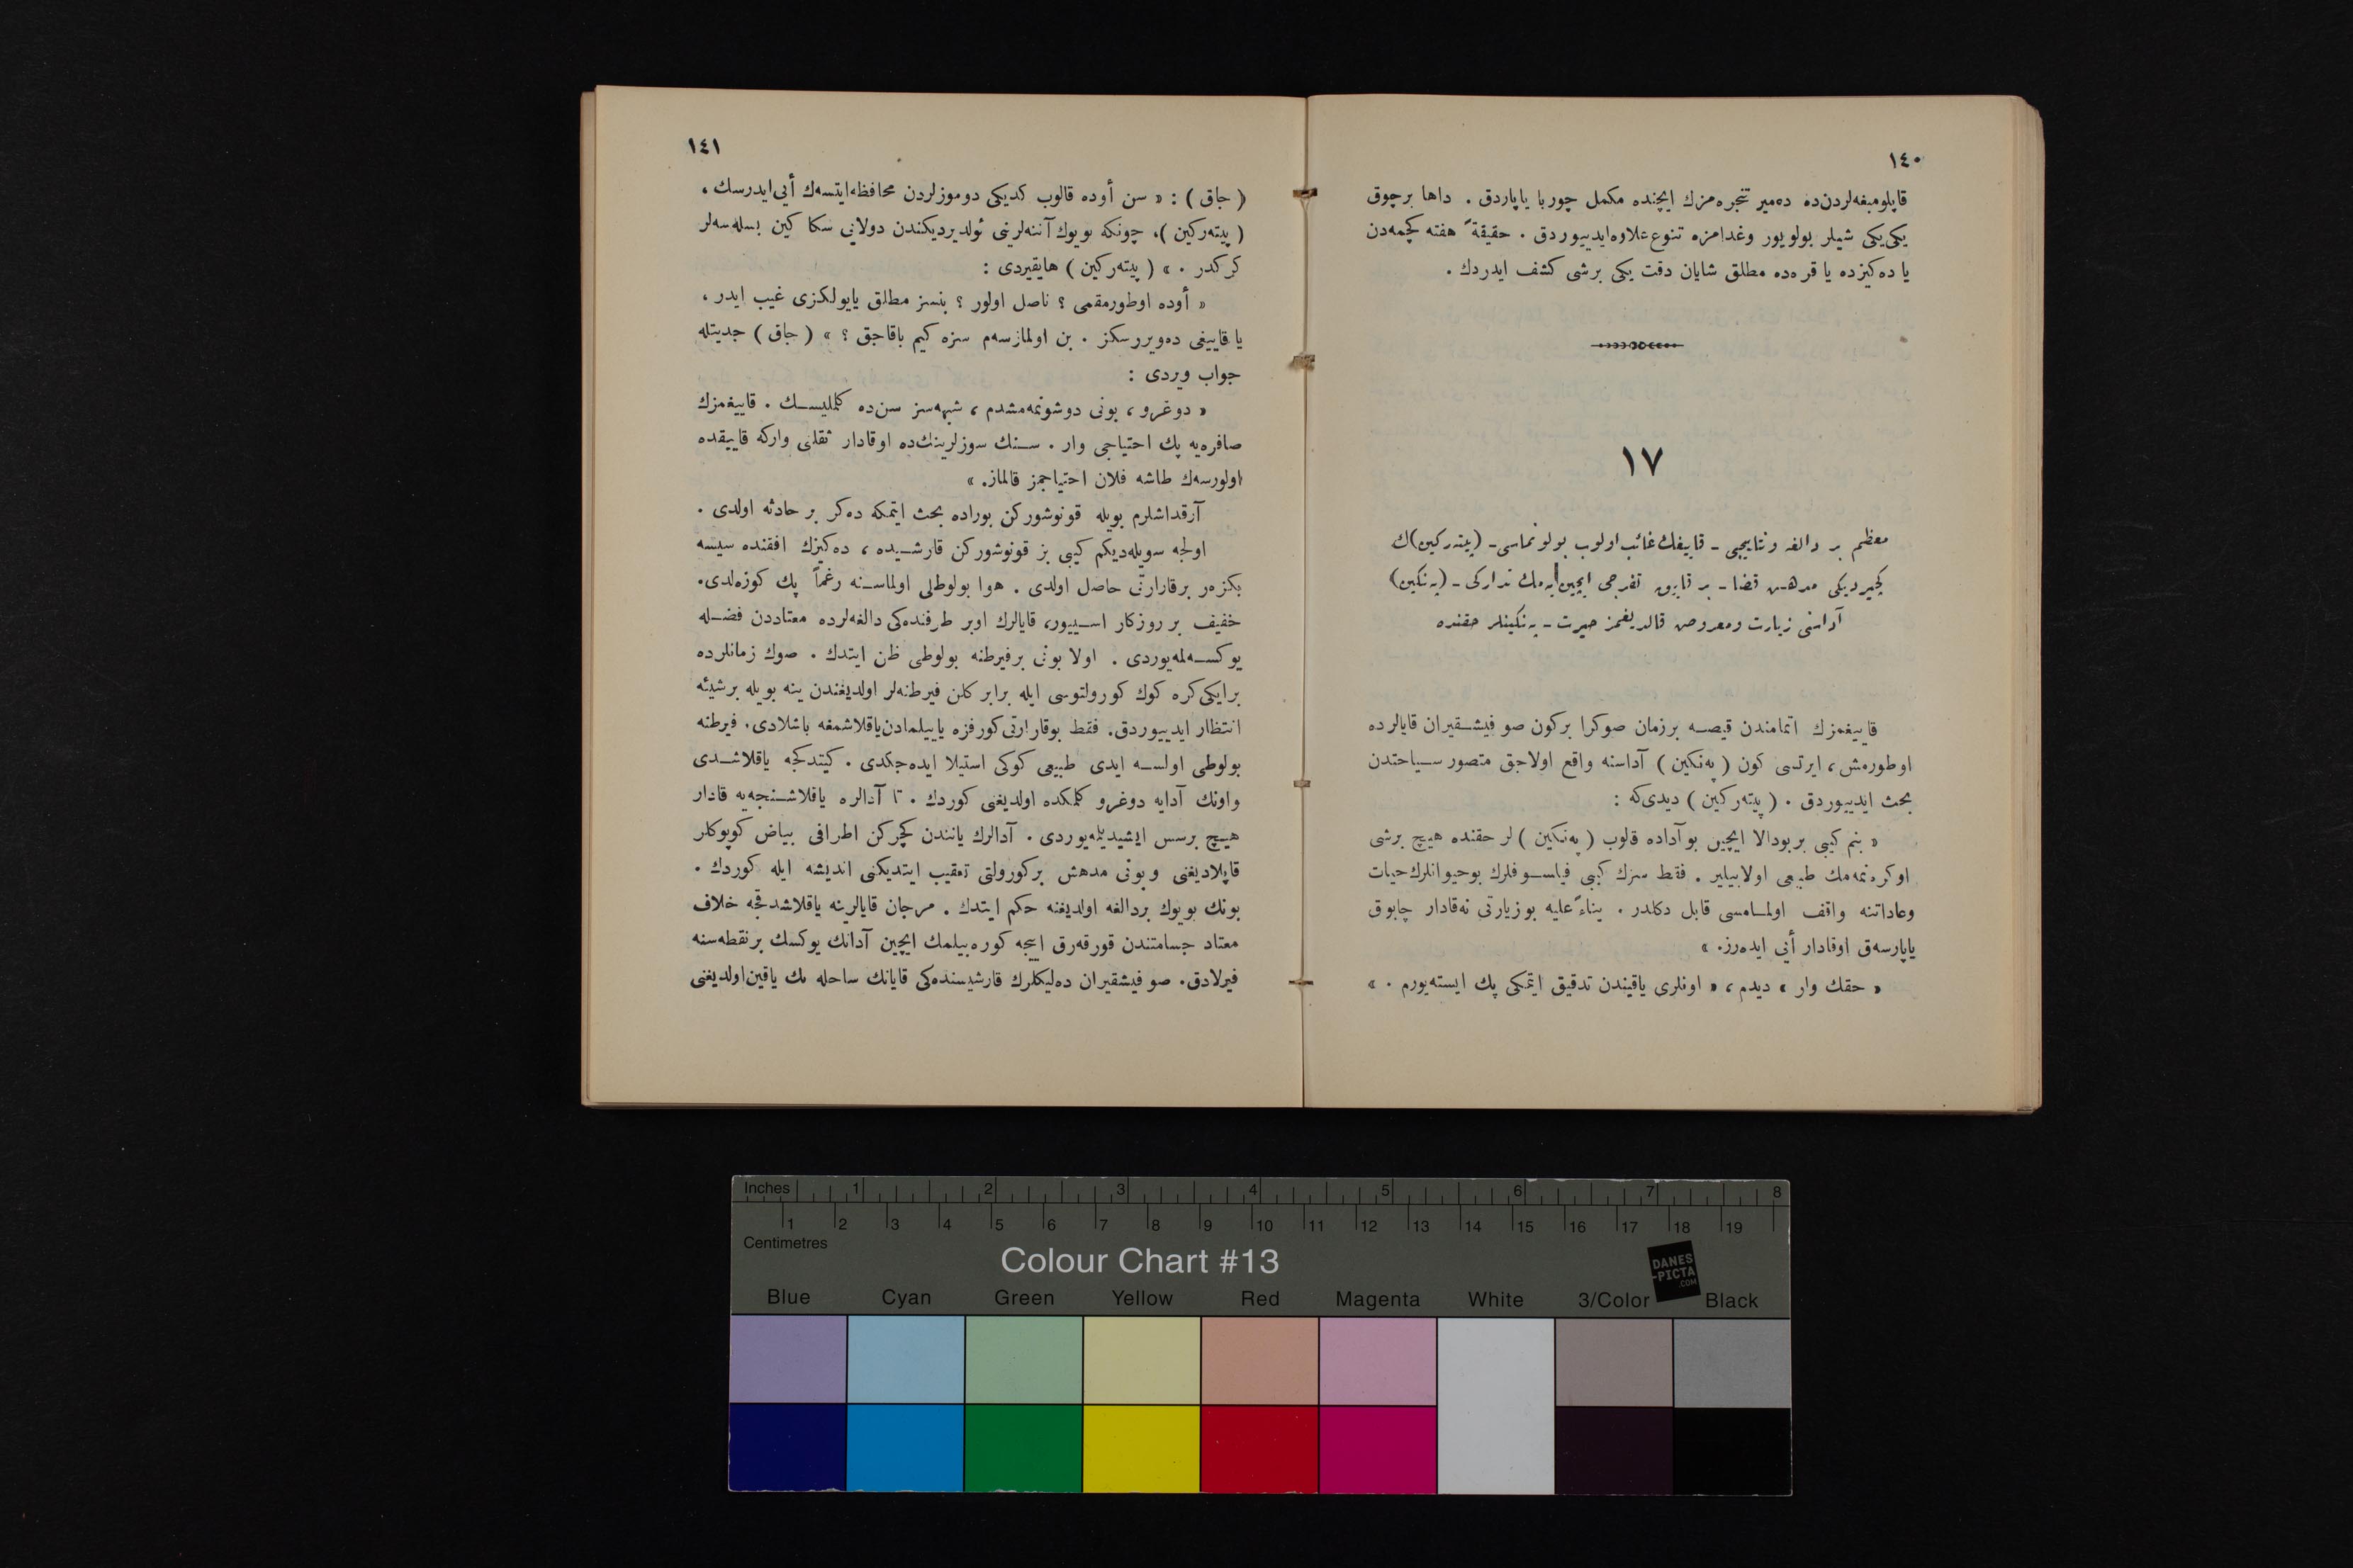 ١٤٠
قاپلومبغه‌لردن‌ده ده‌میر تنجره‌مزك ایچنده مكمل چوربا یاپاردق . داها برچوق
یكی‌یكی شیلر بولویور وغدامزه تنوع علاوه‌ایدییوردق . حقیقةً هفته كچمه‌دن
یا ده‌كیزده یا قره‌ده مطلق شایان دقت یكی برشی كشف ایدردك .
١٧
معظم بر دالغه ونتایجی ـ قاییغك غائب اولوب بولونماسی ـ (پیته‌ركین)ك
كچیردیكی مدهش قضا ـ بر قاییق تفرجی ایچین یمك تداركی ـ (په‌نكین)
آداسنی زیارت ومعروض قالدیغمز حیرت ـ په‌نكینلر حقنده
قاییغمزك اتمامندن قیصه برزمان صوكرا بركون صو فیشقیران قایالرده
اوطورمش، ایرتسی كون ( په‌نكین ) آداسنه واقع اولاجق متصور سیاحتدن
بحث ایدییوردق . ( پیته‌ركین ) دیدی‌كه :
« بنم كبی بربودالا ایچین بوآداده قلوب ( په‌نكین ) لر حقنده هیچ برشی
اوكره‌نمه‌مك طبیعی اولابیلیر . فقط سزك كبی فیلسوفلرك بوحیوانلرك حیات
وعاداتنه واقف اولمامسی قابل دكلدر . بناءً علیه بوزیارتی نه‌قادار چابوق
یاپارسه‌ق اوقادار أیی ایده‌رز. »
« حقك وار » دیدم ، « اونلری یاقیندن تدقیق ایتمكی پك ایسته‌یورم . »
١٤١
( جاق ) : « سن أوده قالوب كدیكی دوموزلردن محافظه‌ایتسه‌ك أیی‌ایدرسك ،
( پیته‌ركین )، چونكه بویوك آننه‌لرینی ئولدیردیكندن دولایی سكا كین بسله‌سه‌لر
كركدر . » ( پیته‌ركین ) هایقیردی :
« أوده اوطورمقمی ؟ ناصل اولور ؟ بنسز مطلق یایولكزی غیب ایدر ،
یا قاییغی ده‌ویررسكز . بن اولمازسه‌م سزه كیم باقاجق ؟ » ( جاق ) جدیتله
جواب ویردی :
« دوغرو ، بونی دوشونمه‌مشدم ، شبهه‌سز سن‌ده كلملیسك . قاییغمزك
صافره‌یه پك احتیاجی وار . سنك سوزلرینك‌ده اوقادار ثقلی واركه قاییقده
اولورسه‌ك طاشه فلان احتیاجمز قالماز. »
آرقداشلرم بویله قونوشوركن بوراده بحث ایتمكه ده‌كر بر حادثه اولدی .
اولجه سویله‌دیكم كیبی بز قونوشوركن قارشیده ، ده‌كیزك افقنده سیسه
بكزه‌ر برقارارتی حاصل اولدی . هوا بولوطلی اولماسنه رغماً پك كوزه‌لدی.
خفیف بر روزكار اسییور، قایالرك اوبر طرفنده‌كی دالغه‌لرده معتاددن فضله
یوكسه‌لمه‌یوردی . اولا بونی برفیرطنه بولوطی ظن ایتدك . صوك زمانلرده
برایكی كره كوك كورولتوسی ایله برابر كلن فیرطنه‌لر اولدیغندن ینه بویله برشیئه
انتظار ایدییوردق. فقط بوقارارتی كورفزه یاییلمادن یاقلاشمغه باشلادی. فیرطنه
بولوطی اولسه ایدی طبیعی كوكی استیلا ایده‌جكدی . كیتدكجه یاقلاشدی
واونك آدایه دوغرو كلمكده اولدیغنی كوردك . تا آدالره یاقلاشنجه‌یه قادار
هیچ برسس ایشیدیلمه‌یوردی . آدالرك یانندن كچركن اطرافی بیاض كوپوكلر
قاپلادیغنی وبونی مدهش بركورولتی تعقیب ایتدیكنی اندیشه ایله كوردك .
بونك بویوك بردالغه اولدیغنه حكم ایتدك . مرجان قایالرینه یاقلاشدقجه خلاف
معتاد جسامتندن قورقه‌رق اییجه كوره‌بیلمك ایچین آدانك یوكسك برنقطه‌سنه
فیرلادق. صو فیشقیران ده‌لیكلرك قارشیسنده‌كی قایانك ساحله پك یاقین‌اولدیغنی
Inches 1 2 3 4 5 6 7 8
1 2 3 4 5 6 7 8 9 10 11 12 13 14 15 16 17 18 19
Centimetres
Colour Chart #13
DANES
-PICTA
.COM
Blue Cyan Green Yellow Red Magenta White 3/Color Black